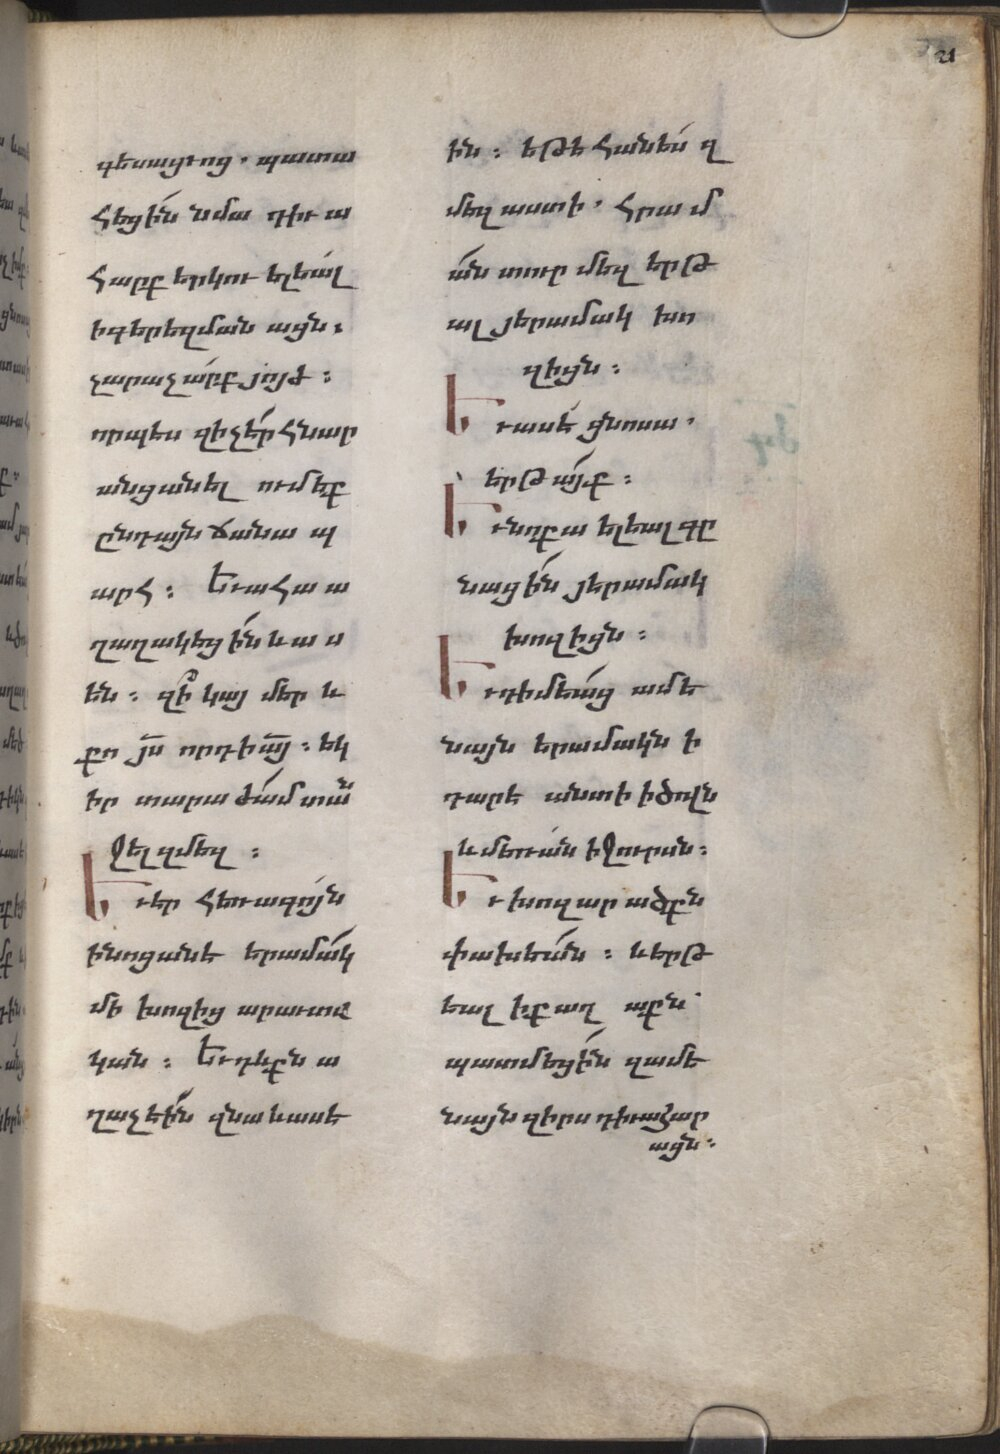 21
գեսացւոց. պատա
հեցին նմա դիւա
հարք երկու ելեալ
ի գերեզմանացն,
չարաչարք յոյժ :
որպես զի չէր հնար
անցանել ումեք
ընդայն ճանապ
արհ : Եւ ահա ա
ղաղակեցին և աս
են : զի՞ կայ մեր և
քո յս որդի այ : եկ
իր տարաժամ տա՞ն
ջել զմեզ :
Եւ էր հեռագոյն
ի նոցանէ երամակ
մի խոզից արաւտա
կան : Եւ դևքն ա
ղաչէին զնա և ասե
ին : եթե հանես զ
մեզ աստի. հրամ
ան տուր մեզ երթ
ալ յերամակ խո
զիցն :
Եւ ասէ ցնոսա.
երթայք :
Եւ նոքա ելեալ գը
նացին յերամակ
խոզիցն :
Եւ դիմեաց ամե
նայն երամակն ի
դարէ անտի ի ծովն
և մեռան ի ջուրսն :
Եւ խոզարածքն
փախեան : և երթ
եալ ի քաղաքն
պատմեցին զամե
նայն զիրս դիւահար
ացն :